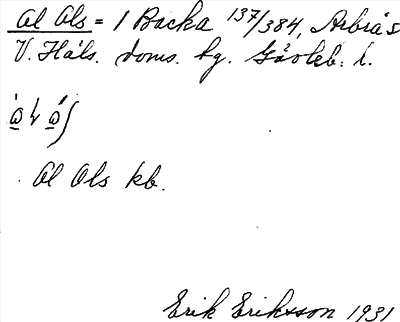 Al Als = 1 Backa 137/384, Arbrå s
V. Häls. doms. hg. Gävleb. l.
Al Als kb.
Erik Eriksson 1931